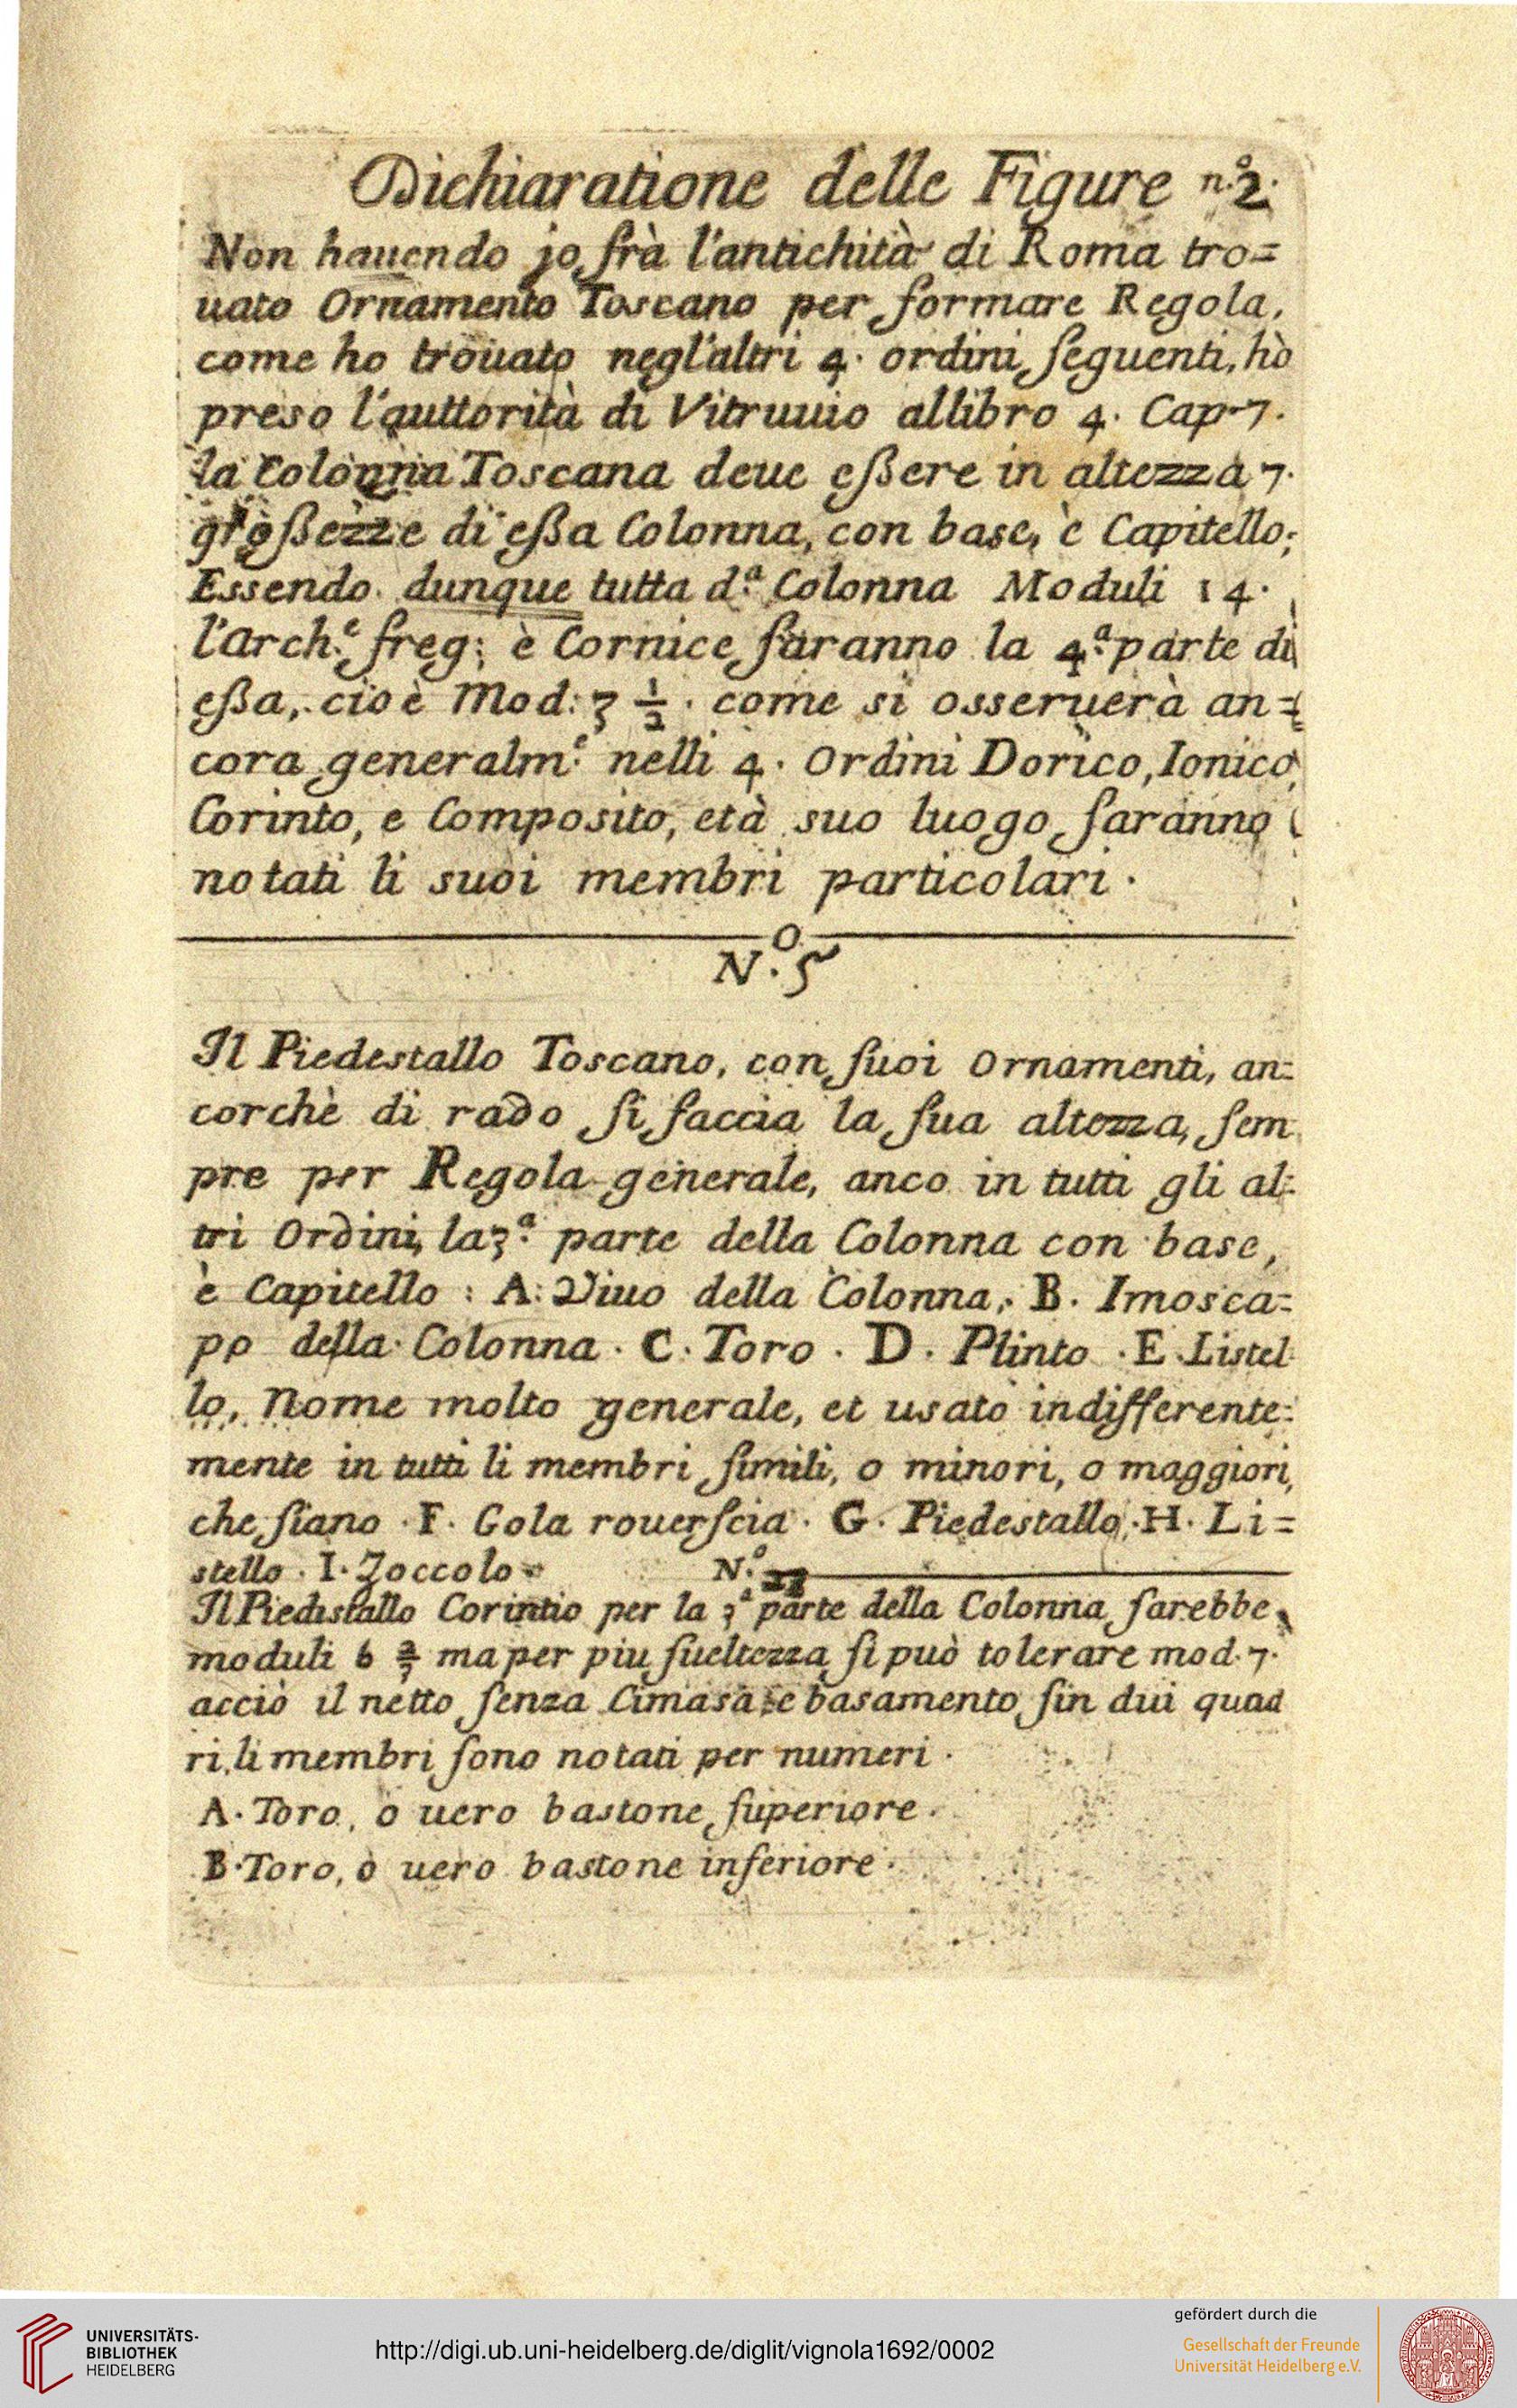 Dichiaratione delle Figure n.º 2.
Non hauendo jo frà l'antichità di Roma tro=
uato Ornamento Toscano per formare Regola,
come ho trouato negl'altri 4. ordini ſeguenti, hò
preso l'auttorità di Vitruuio allibro 4. Cap. 7.
la Colonna Toscana deue eßere in altezza 7.
großezze di eßa Colonna, con base, è Capitello;
Essendo dunque tutta d.ª Colonna Moduli 14.
l'Arch.e freg; è Cornice ſaranno la 4.ª parte di
eßa, cioè Mod: 3 1/2. come si osseruerà an=
cora generalm.e nelli 4. Ordini Dorico, Ionico,
Corinto, e Composito, età suo luogo ſaranno
notati li suoi membri particolari.
N.º 5
Il Piedestallo Toscano, con ſuoi Ornamenti, an=
corchè di rado ſi faccia la ſua altezza, ſem
pre per Regola generale, anco in tutti gli al=
tri Ordini, la 3.ª parte della Colonna con base,
è Capitello: A. Viuo della Colonna, B. Imosca=
po della Colonna. C. Toro. D. Plinto. E. Listel
lo, Nome molto generale, et usato indifferente=
mente in tutti li membri ſimili, o minori, o maggiori,
che ſiano. F. Gola rouerſcia. G. Piedestallo. H. Li=
stello. I. Zoccolo
N.º
Il Piedistallo Corintio per la 3ª parte della Colonna ſarebbe
moduli 6 2/3 ma per piu ſueltezza ſi può tolerare mod. 7.
acciò il netto ſenza Cimasa, e basamento ſin dui quad
ri, li membri ſono notati per numeri.
A. Toro, ò uero bastone ſuperiore.
B. Toro, ò uero bastone inferiore.
UNIVERSITÄTS-
BIBLIOTHEK
HEIDELBERG
http://digi.ub.uni-heidelberg.de/diglit/vignola1692/0002
gefördert durch die
Gesellschaft der Freunde
Universität Heidelberg e.V.